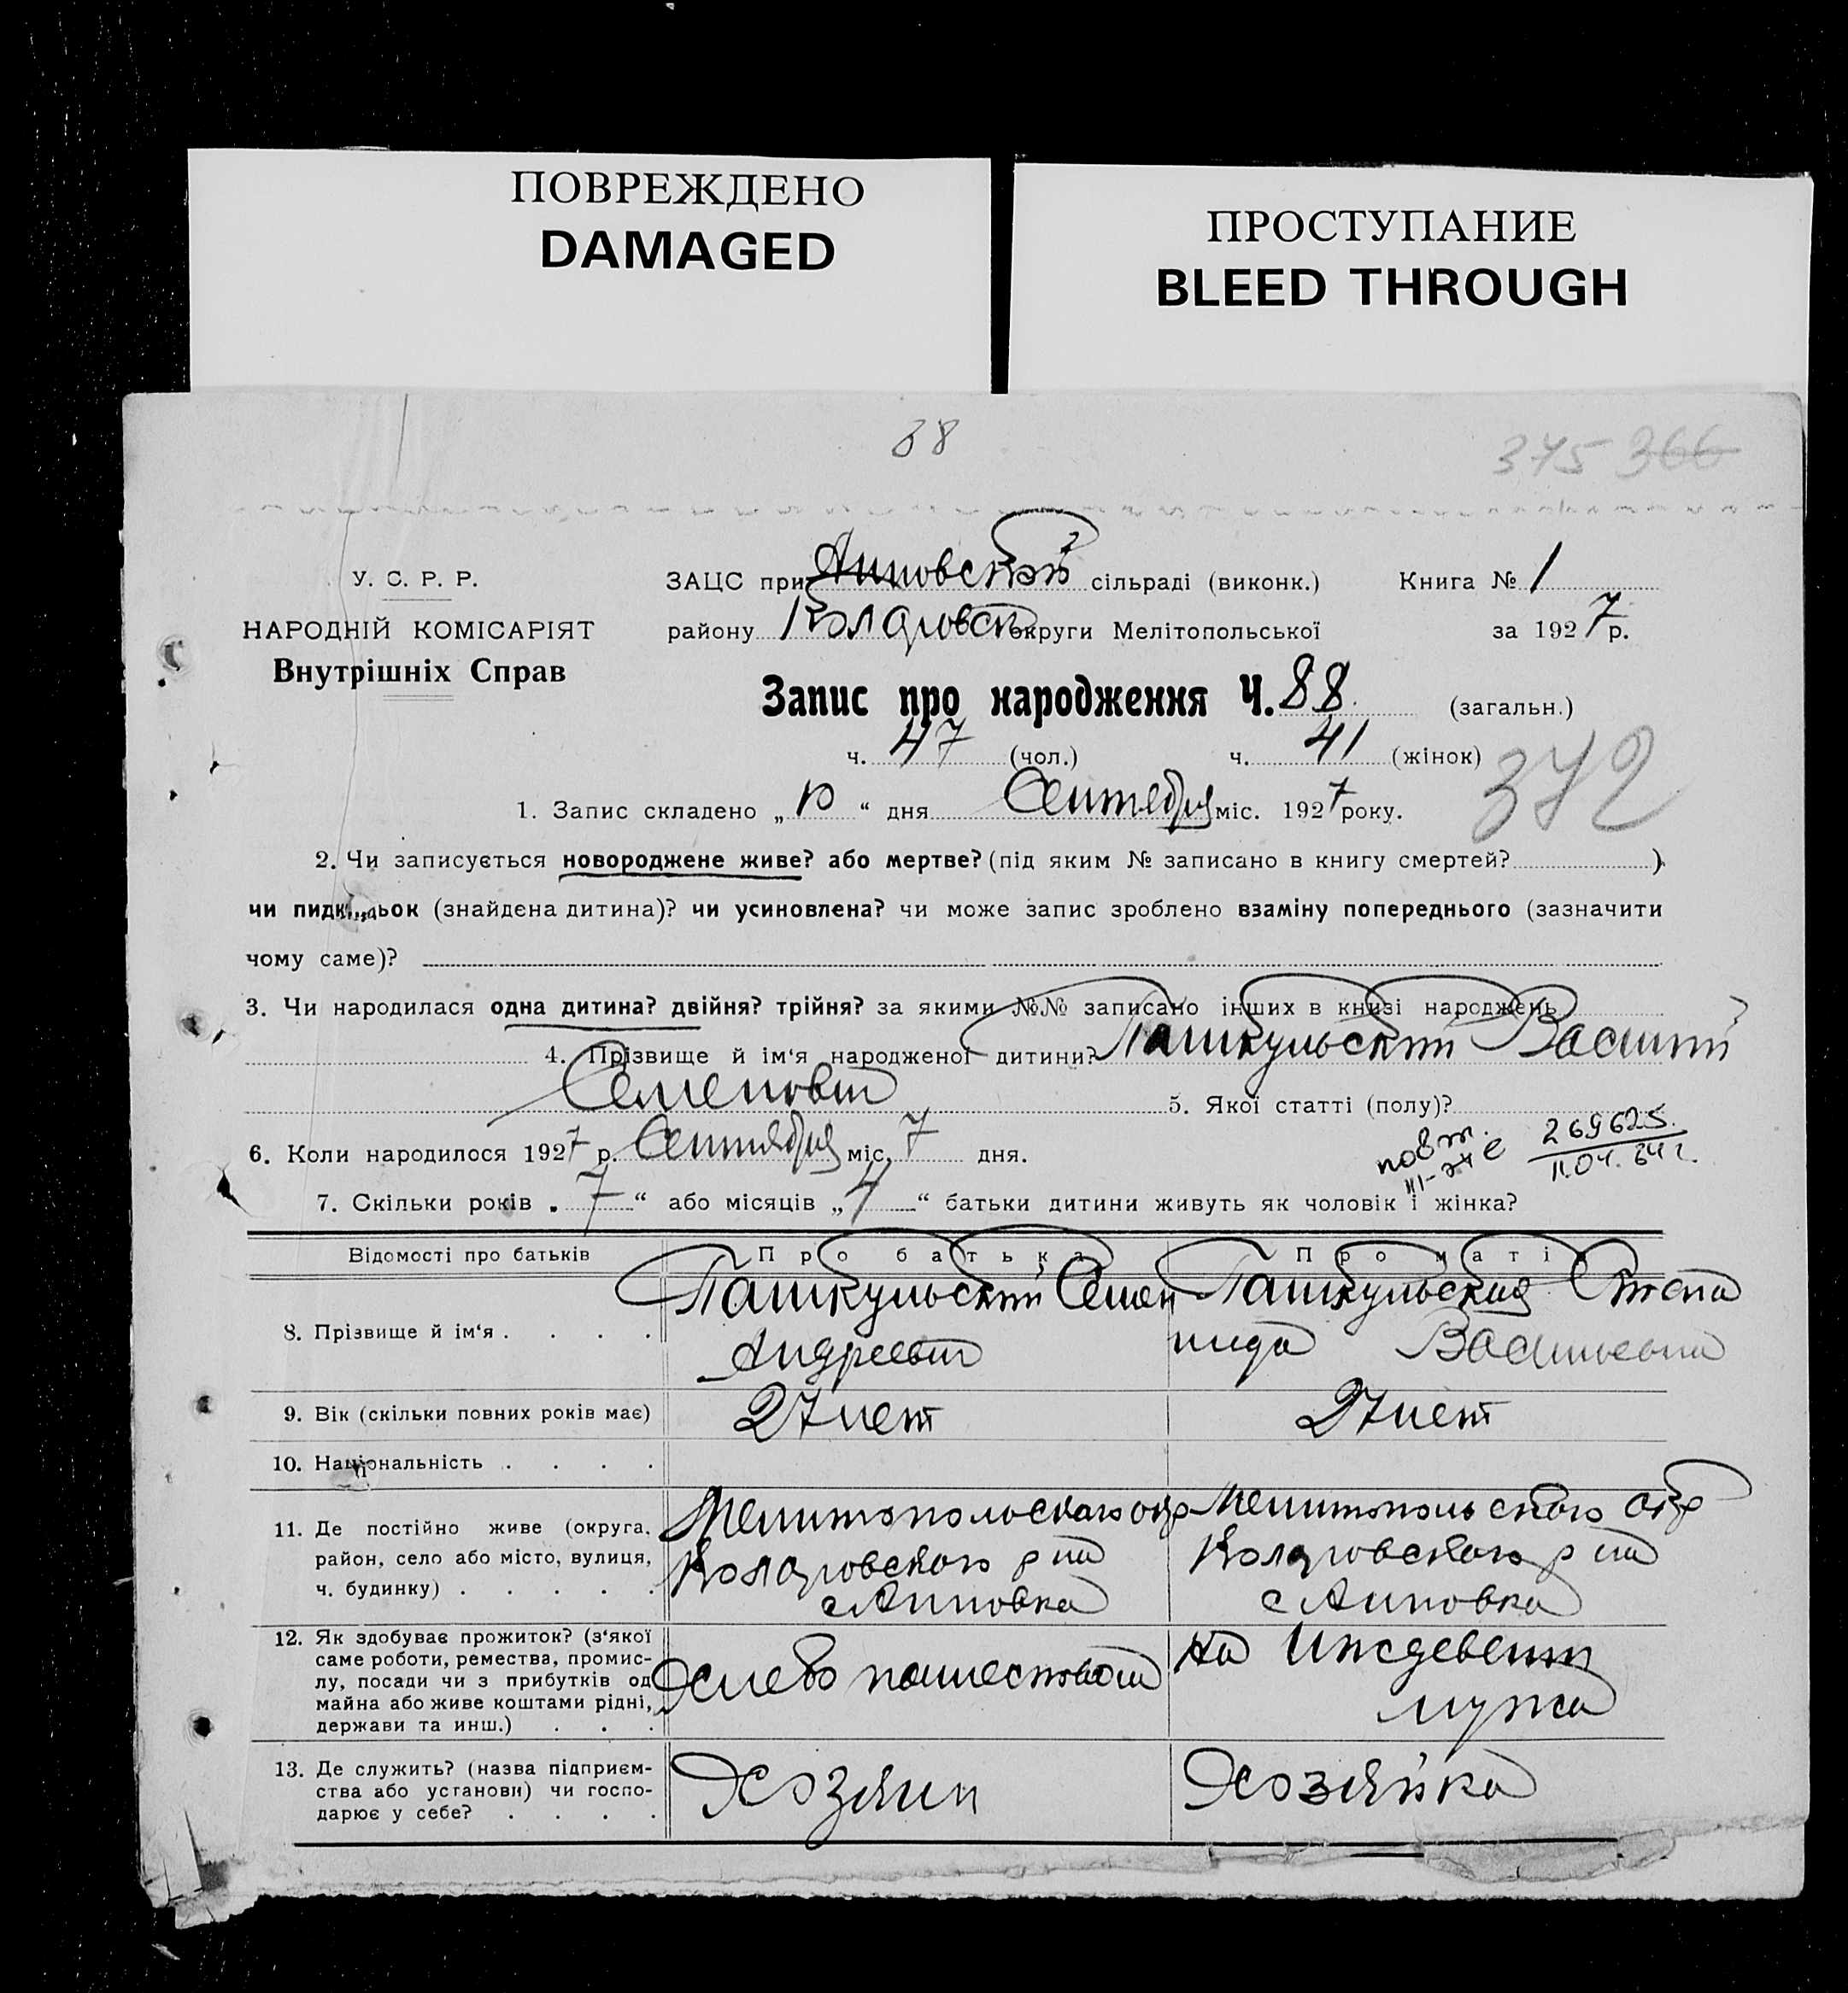 ПОВРЕЖДЕНО
DAMAGED
ПРОСТУПАНИЕ
BLEED THROUGH
88
375 366
У. С. Р. Р.
НАРОДНІЙ КОМІСАРІЯТ
Внутрішніх Справ
ЗАЦС при сільраді (виконк.) Книга № 1
району Коларовск округи Мелітопольської за 1927 р.
Запис про народження Ч. 88 (загальн.)
ч. 47 (чол.) ч. 41 (жінок)
372
1. Запис складено „10“ дня Сентября міс. 1927 року.
2. Чи записується новороджене живе? або мертве? (під яким № записано в книгу смертей? )
чи (знайдена дитина)? чи усиновлена? чи може запис зроблено взаміну попереднього (зазначити
чому саме)?
3. Чи народилася одна дитина? двійня? трійня? за якими №№ записано інших в книзі народжень
4. Прізвище й ім‘я народженої дитини? Пашкульский Василий
Семенович
5. Якої статті (полу)?
6. Коли народилося 1927 р. Сентября міс. 7 дня.
повт.
269625.
7. Скільки років „7“ або місяців „4“ батьки дитини живуть як чоловік і жінка?
Відомості про батьків Про батька Про матір
8. Прізвище й ім‘я . . . . Пашкульский Семен Андреевич Пашкульская Степанида Васильевна
9. Вік (скільки повних років має) 27 лет 27 лет
10. Національність . . . .
11. Де постійно живе (округа, район, село або місто, вулиця, ч. будинку) . . . . . Мелитопольскаго окр Коларовского р на с Анновка Мелитопольского окр Коларовского р на с Анновка
12. Як здобуває прожиток? (з‘якої саме роботи, ремества, промислу, посади чи з прибутків од майна або живе коштами рідні, держави та инш.) . . . Хлебопашеством На Иждевении мужа
13. Де служить? (назва підприємства або установи) чи господарює у себе? . . . . Хозяин Хозяйка